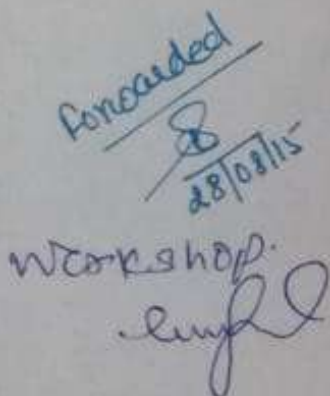 Forwarded
28/08/15
Workshop.